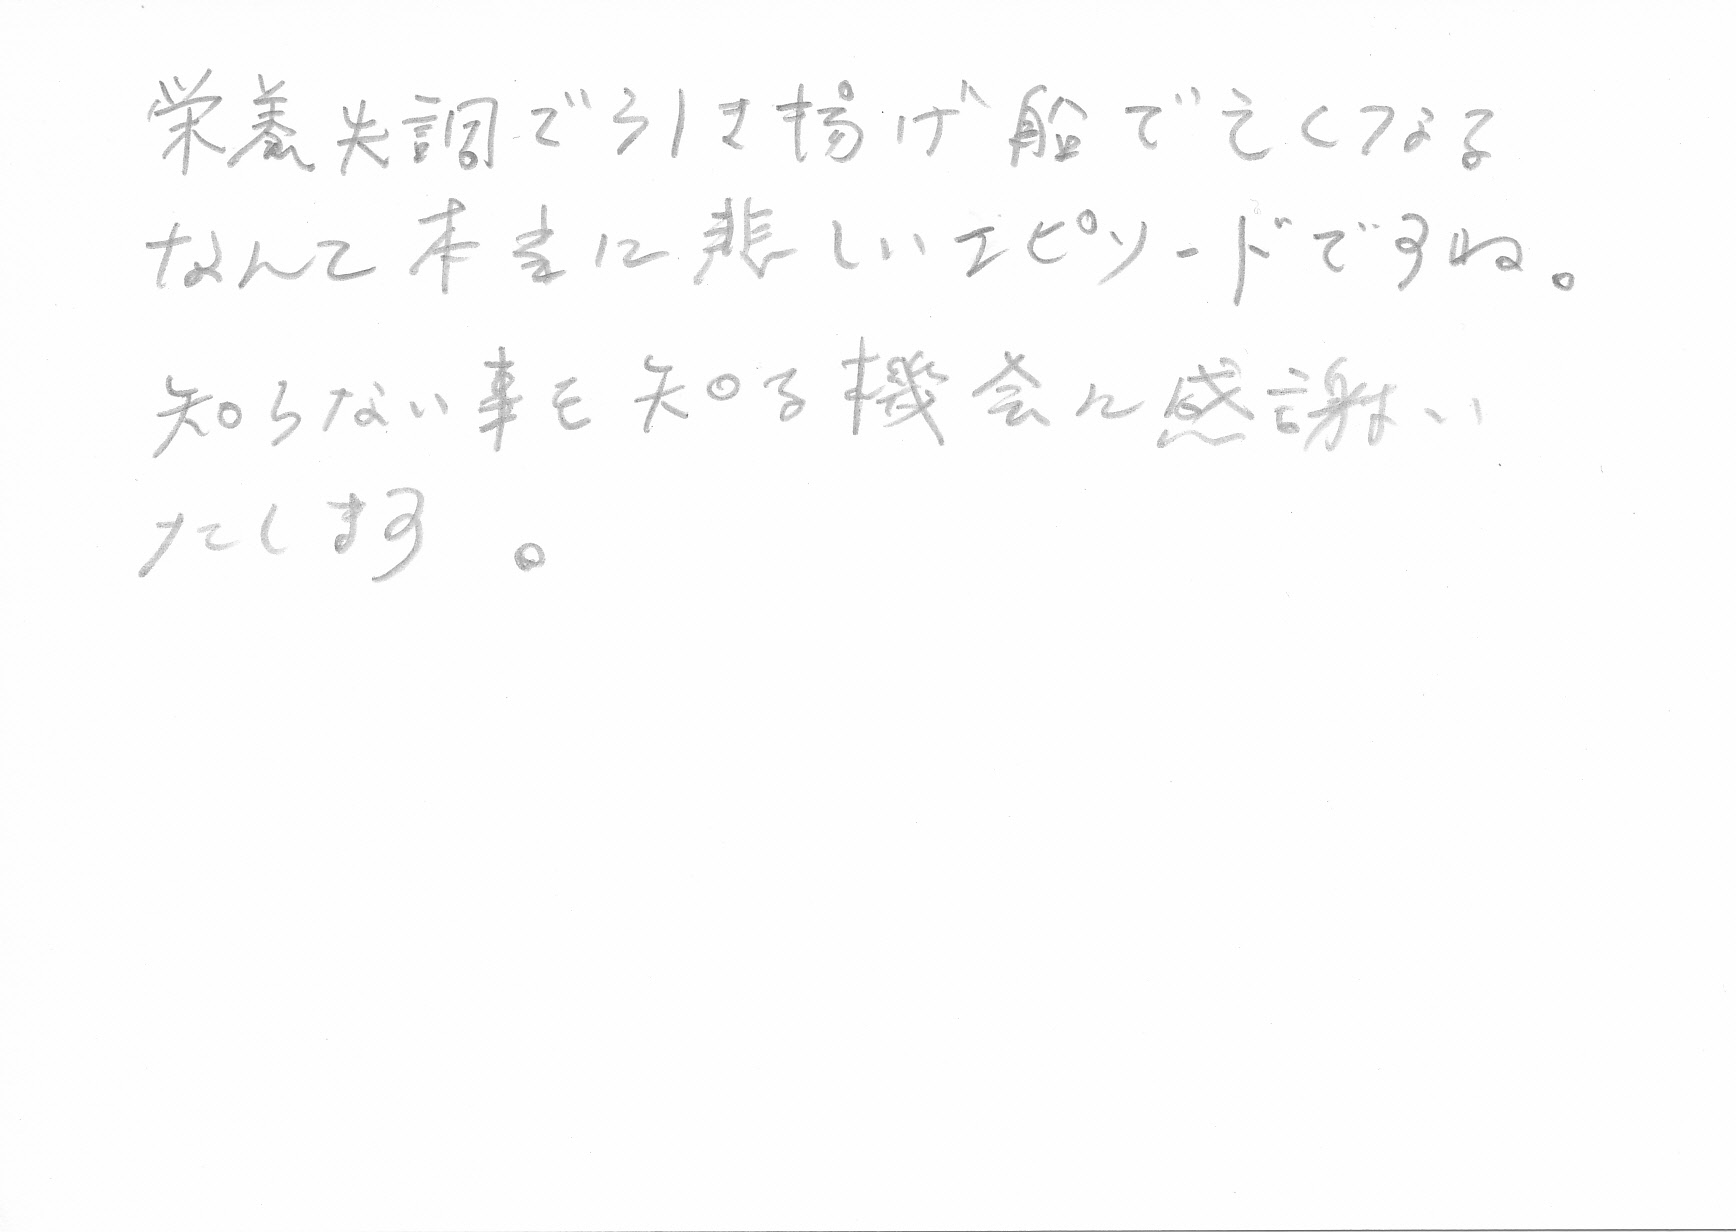 栄養失調で引き揚げ船で亡くなる
なんて本当に悲しいエピソードですね。
知らない事を知る機会に感謝い
たします。